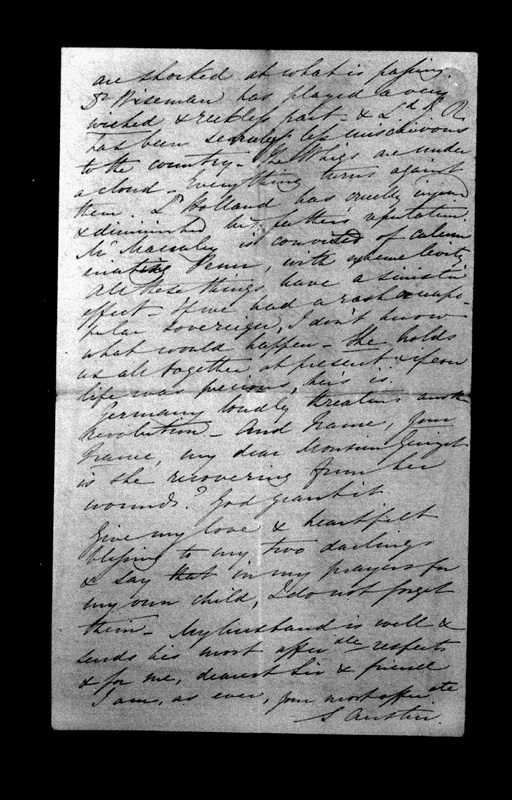 are shocked at what is passing.
Dr Wiseman has played a very
wicked & reckless part - & Ld J. R.
has been scarcely less mischievous
to the country - The Whigs are under
a cloud - Everything turns against
them. Ld Holland has cruelly injured
& diminished his father's reputation.
Mr Macaulay is convicted of calum
niating Penn, with extreme levity
All these things have a sinister
effect - If we had a rash or unpo-
pular Sovereign, I don't know
what would happen - She holds
us all together at present & if ever
life was precious, hers is.
Germany loudly threatens another
revolution - And France, your
France, my dear Monsieur Guizot
is she recovering from her
wounds? God grant it
Give my love & heartfelt
blessing to my two darlings
& say that in my prayers for
my own child, I do not forget
them - My husband is well &
sends his most affecate respects
& for me, dearest Sir & friend
I am, as ever, your most affecate
S Austin.